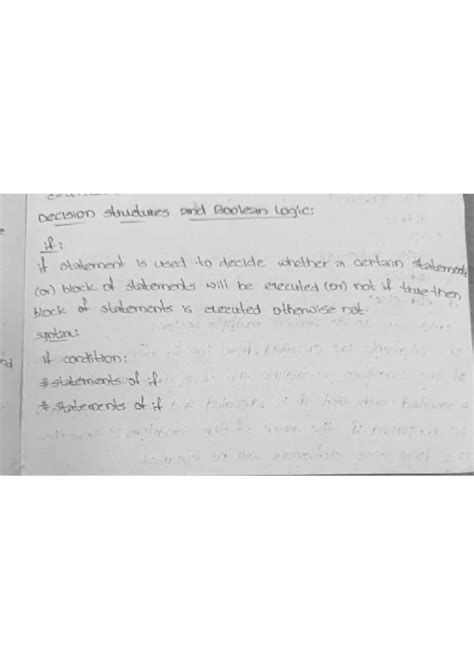 Decision structures and Boolean Logic:
if:
if statement is used to decide whether a certain statement
(or) block of statements will be executed (or) not if true then
block of statements is executed otherwise not.
syntax:
if condition:
# statements of if
# statements of if